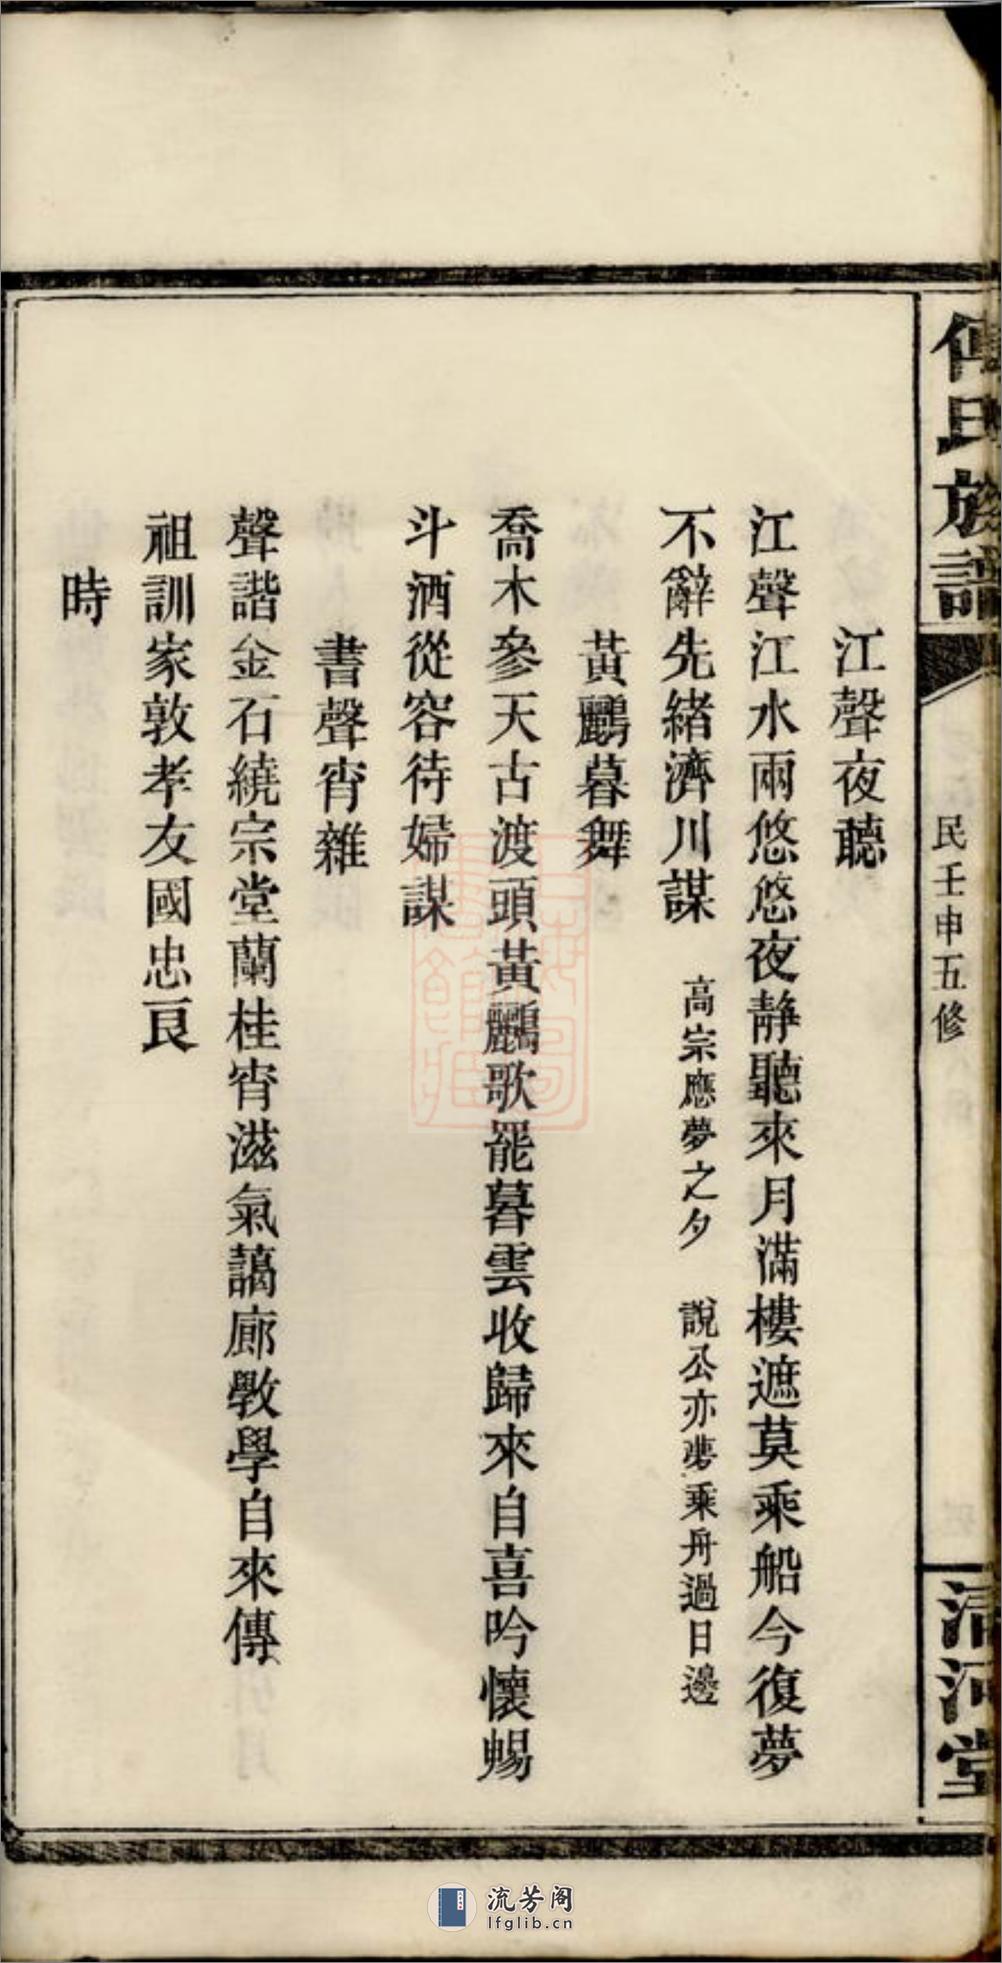 傅氏族譜
民壬申五修
清河堂
江聲夜聽
江聲江水兩悠悠夜靜聽來月滿樓遮莫乘船今復夢
不辭先緒濟川謀 高宗應夢之夕 說公亦夢乘舟過日邊
黃鸝暮舞
喬木參天古渡頭黃鸝歌罷暮雲收歸來自喜吟懷暢
斗酒從容待婦謀
書聲宵雜
聲諧金石繞宗堂蘭桂宵滋氣藹廊斆學自來傳
祖訓家敦孝友國忠良
時
流芳阁
lfglib.cn